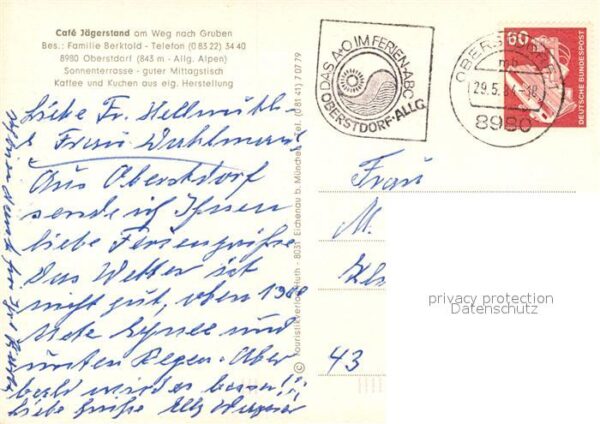 Café Jägerstand am Weg nach Gruben
Bes.: Familie Berktold - Telefon (0 83 22) 34 40
8980 Oberstdorf (843 m - Allg. Alpen)
Sonnenterrasse - guter Mittagstisch
Kaffee und Kuchen aus eig. Herstellung
Liebe Fr. Hellmuth
& Frau Dahlmann
Aus Oberstdorf
sende ich Ihnen
liebe Feriengrüße
Das Wetter ist
nicht gut, oben
Schnee und
unten Regen. Aber
bald wird es besser!!
Liebe Grüße Elly
© Touristikverlag Huth - 8031 Eichenau b. München - Tel. (0 81 41) 7 07 79
DAS A+O IM FERIEN-ABC
OBERSTDORF-ALLG.
OBERSTDORF 1
mb
29.5.
8980
60
DEUTSCHE BUNDESPOST
Frau
M.
43
privacy protection
Datenschutz